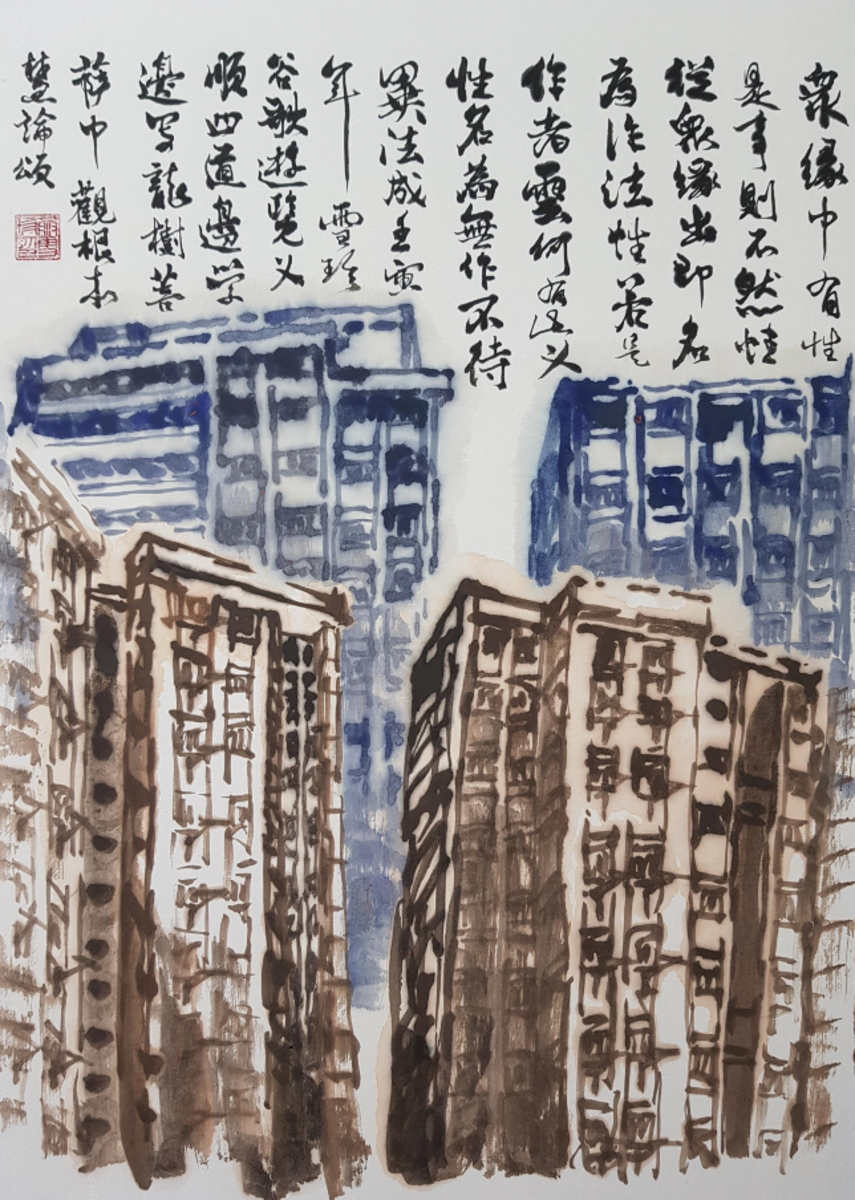 衆緣中有性
是事則不然性
從衆緣出即名
為作法性若是
作者雲何有此义
性名為無作不待
異法成壬寅
年 雪
谷歌遊覽义
順四道邊学
邊写龍樹菩
薩中 觀根本
慧論頌